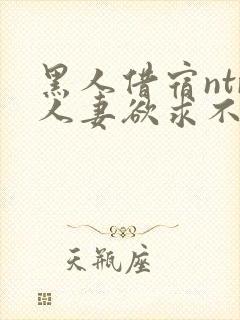 黑人借宿ntr
人妻欲求不
天瓶座